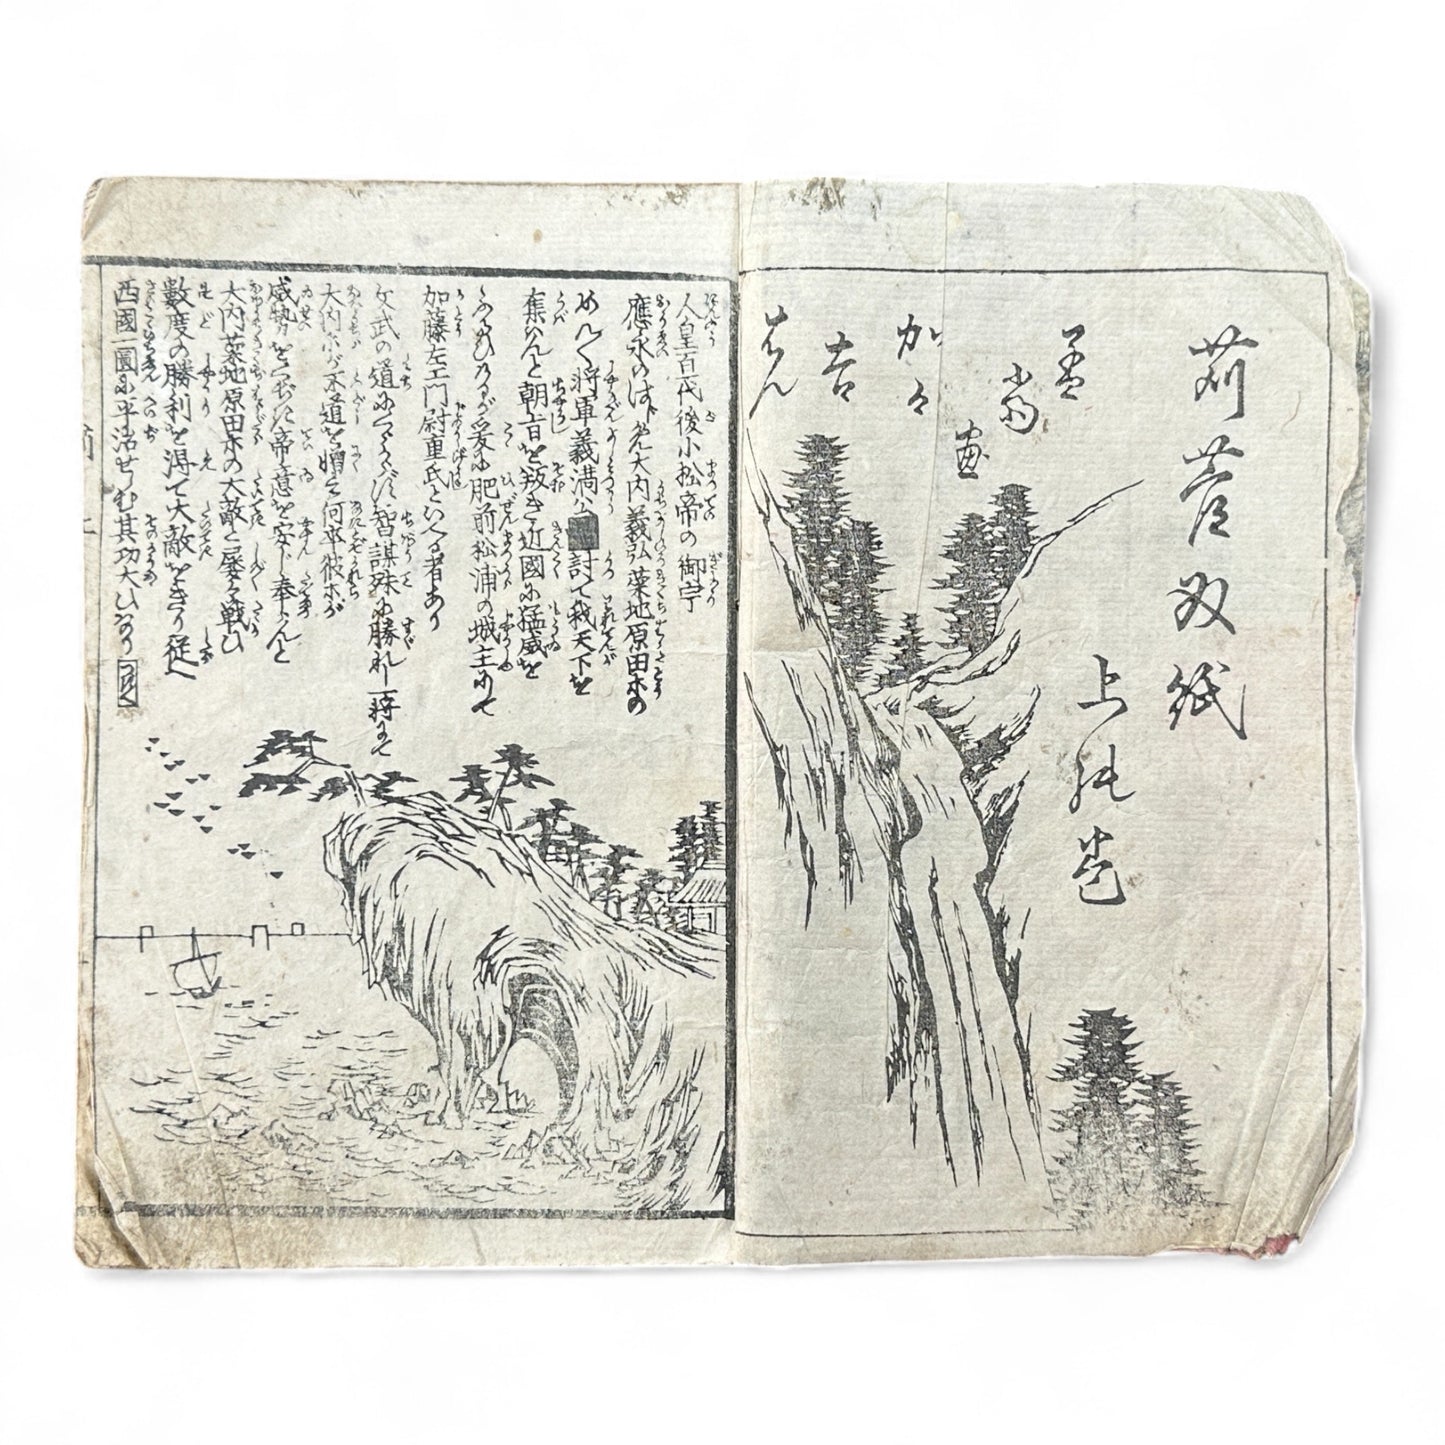 苅萱双紙
上の巻
孟斎画
加々吉はん
人皇百代後小松帝の御宇
應永のはじめ大内義弘菊地原田等の
めんく将軍義満公■討て我天下を
奪はんと朝旨を叛き近國に猛威を
ふるひけるが爰に肥前松浦の城主にて
加藤左エ門尉重氏といへる者あり
文武の道にくらからず智謀殊に勝れし将にて
大内が不道を憎み何卒彼等が
威勢をくじき帝意を安じ奉らんと
大内菊地原田等の大敵と屡々戦ひ
數度の勝利を得て大敵をきり従へ
西國一圓に平治せしむ其功大ひなり
つぎへ